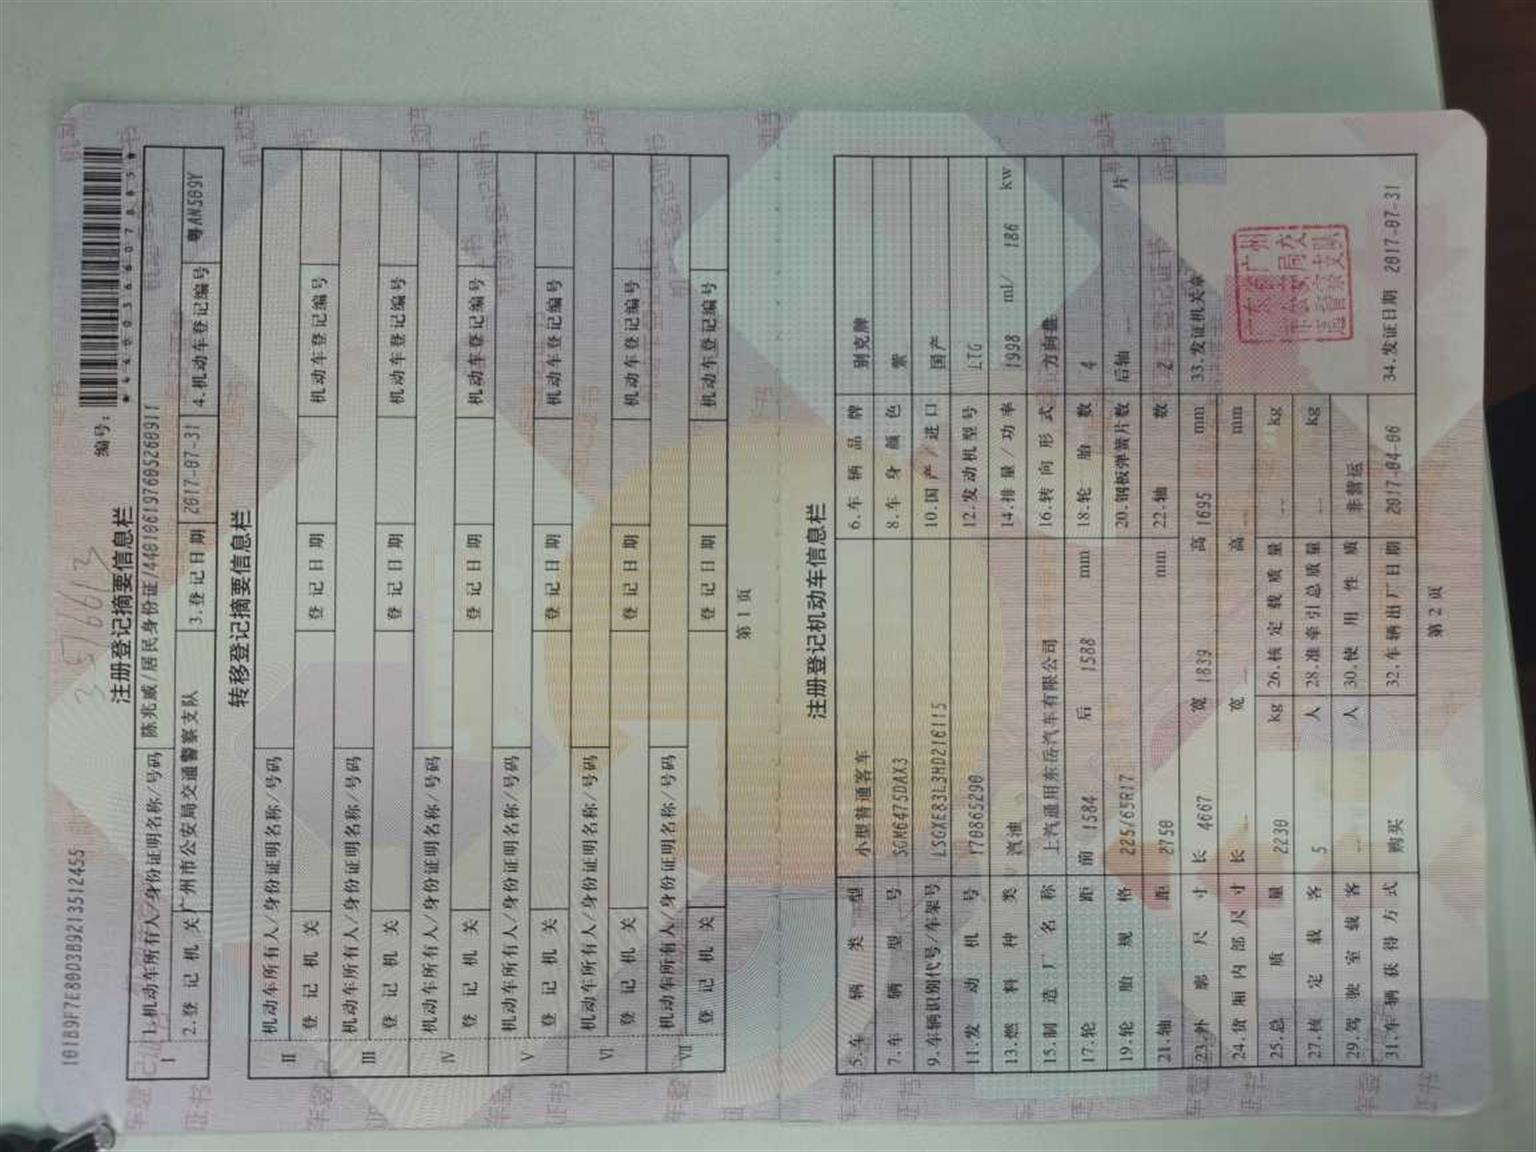 101B9F7E80D3B9213512455
编号:
注册登记摘要信息栏
I 1.机动车所有人/身份证明名称/号码 陈兆威/居民身份证/440106197605260911
2.登记机关 广州市公安局交通警察支队 3.登记日期 2017-07-31 4.机动车登记编号 粤AN589Y
转移登记摘要信息栏
II 机动车所有人/身份证明名称/号码
登记机关 登记日期 机动车登记编号
III 机动车所有人/身份证明名称/号码
登记机关 登记日期 机动车登记编号
IV 机动车所有人/身份证明名称/号码
登记机关 登记日期 机动车登记编号
V 机动车所有人/身份证明名称/号码
登记机关 登记日期 机动车登记编号
VI 机动车所有人/身份证明名称/号码
登记机关 登记日期 机动车登记编号
VII 机动车所有人/身份证明名称/号码
登记机关 登记日期 机动车登记编号
第1页
注册登记机动车信息栏
5.车辆类型 小型普通客车 6.车辆品牌 别克牌
7.车辆型号 SGM6475DAX3 8.车身颜色 紫
9.车辆识别代号/车架号 LSGXE83L3HD216115 10.国产/进口 国产
11.发动机号 170865290 12.发动机型号 LTG
13.燃料种类 汽油 14.排量/功率 1998 ml/ 186 kw
15.制造厂名称 上汽通用东岳汽车有限公司 16.转向形式 方向盘
17.轮距 前 1584 后 1588 mm 18.轮胎数 4
19.轮胎规格 225/65R17 20.钢板弹簧片数 后轴 -- 片
21.轴距 2750 mm 22.轴数 2
23.外廓尺寸 长 4667 宽 1839 高 1695 mm 33.发证机关章
24.货厢内部尺寸 长 -- 宽 -- 高 -- mm
25.总质量 2230 kg 26.核定载质量 -- kg
27.核定载客 5 人 28.准牵引总质量 -- kg
29.驾驶室载客 -- 人 30.使用性质 非营运
31.车辆获得方式 购买 32.车辆出厂日期 2017-04-06 34.发证日期 2017-07-31
第2页